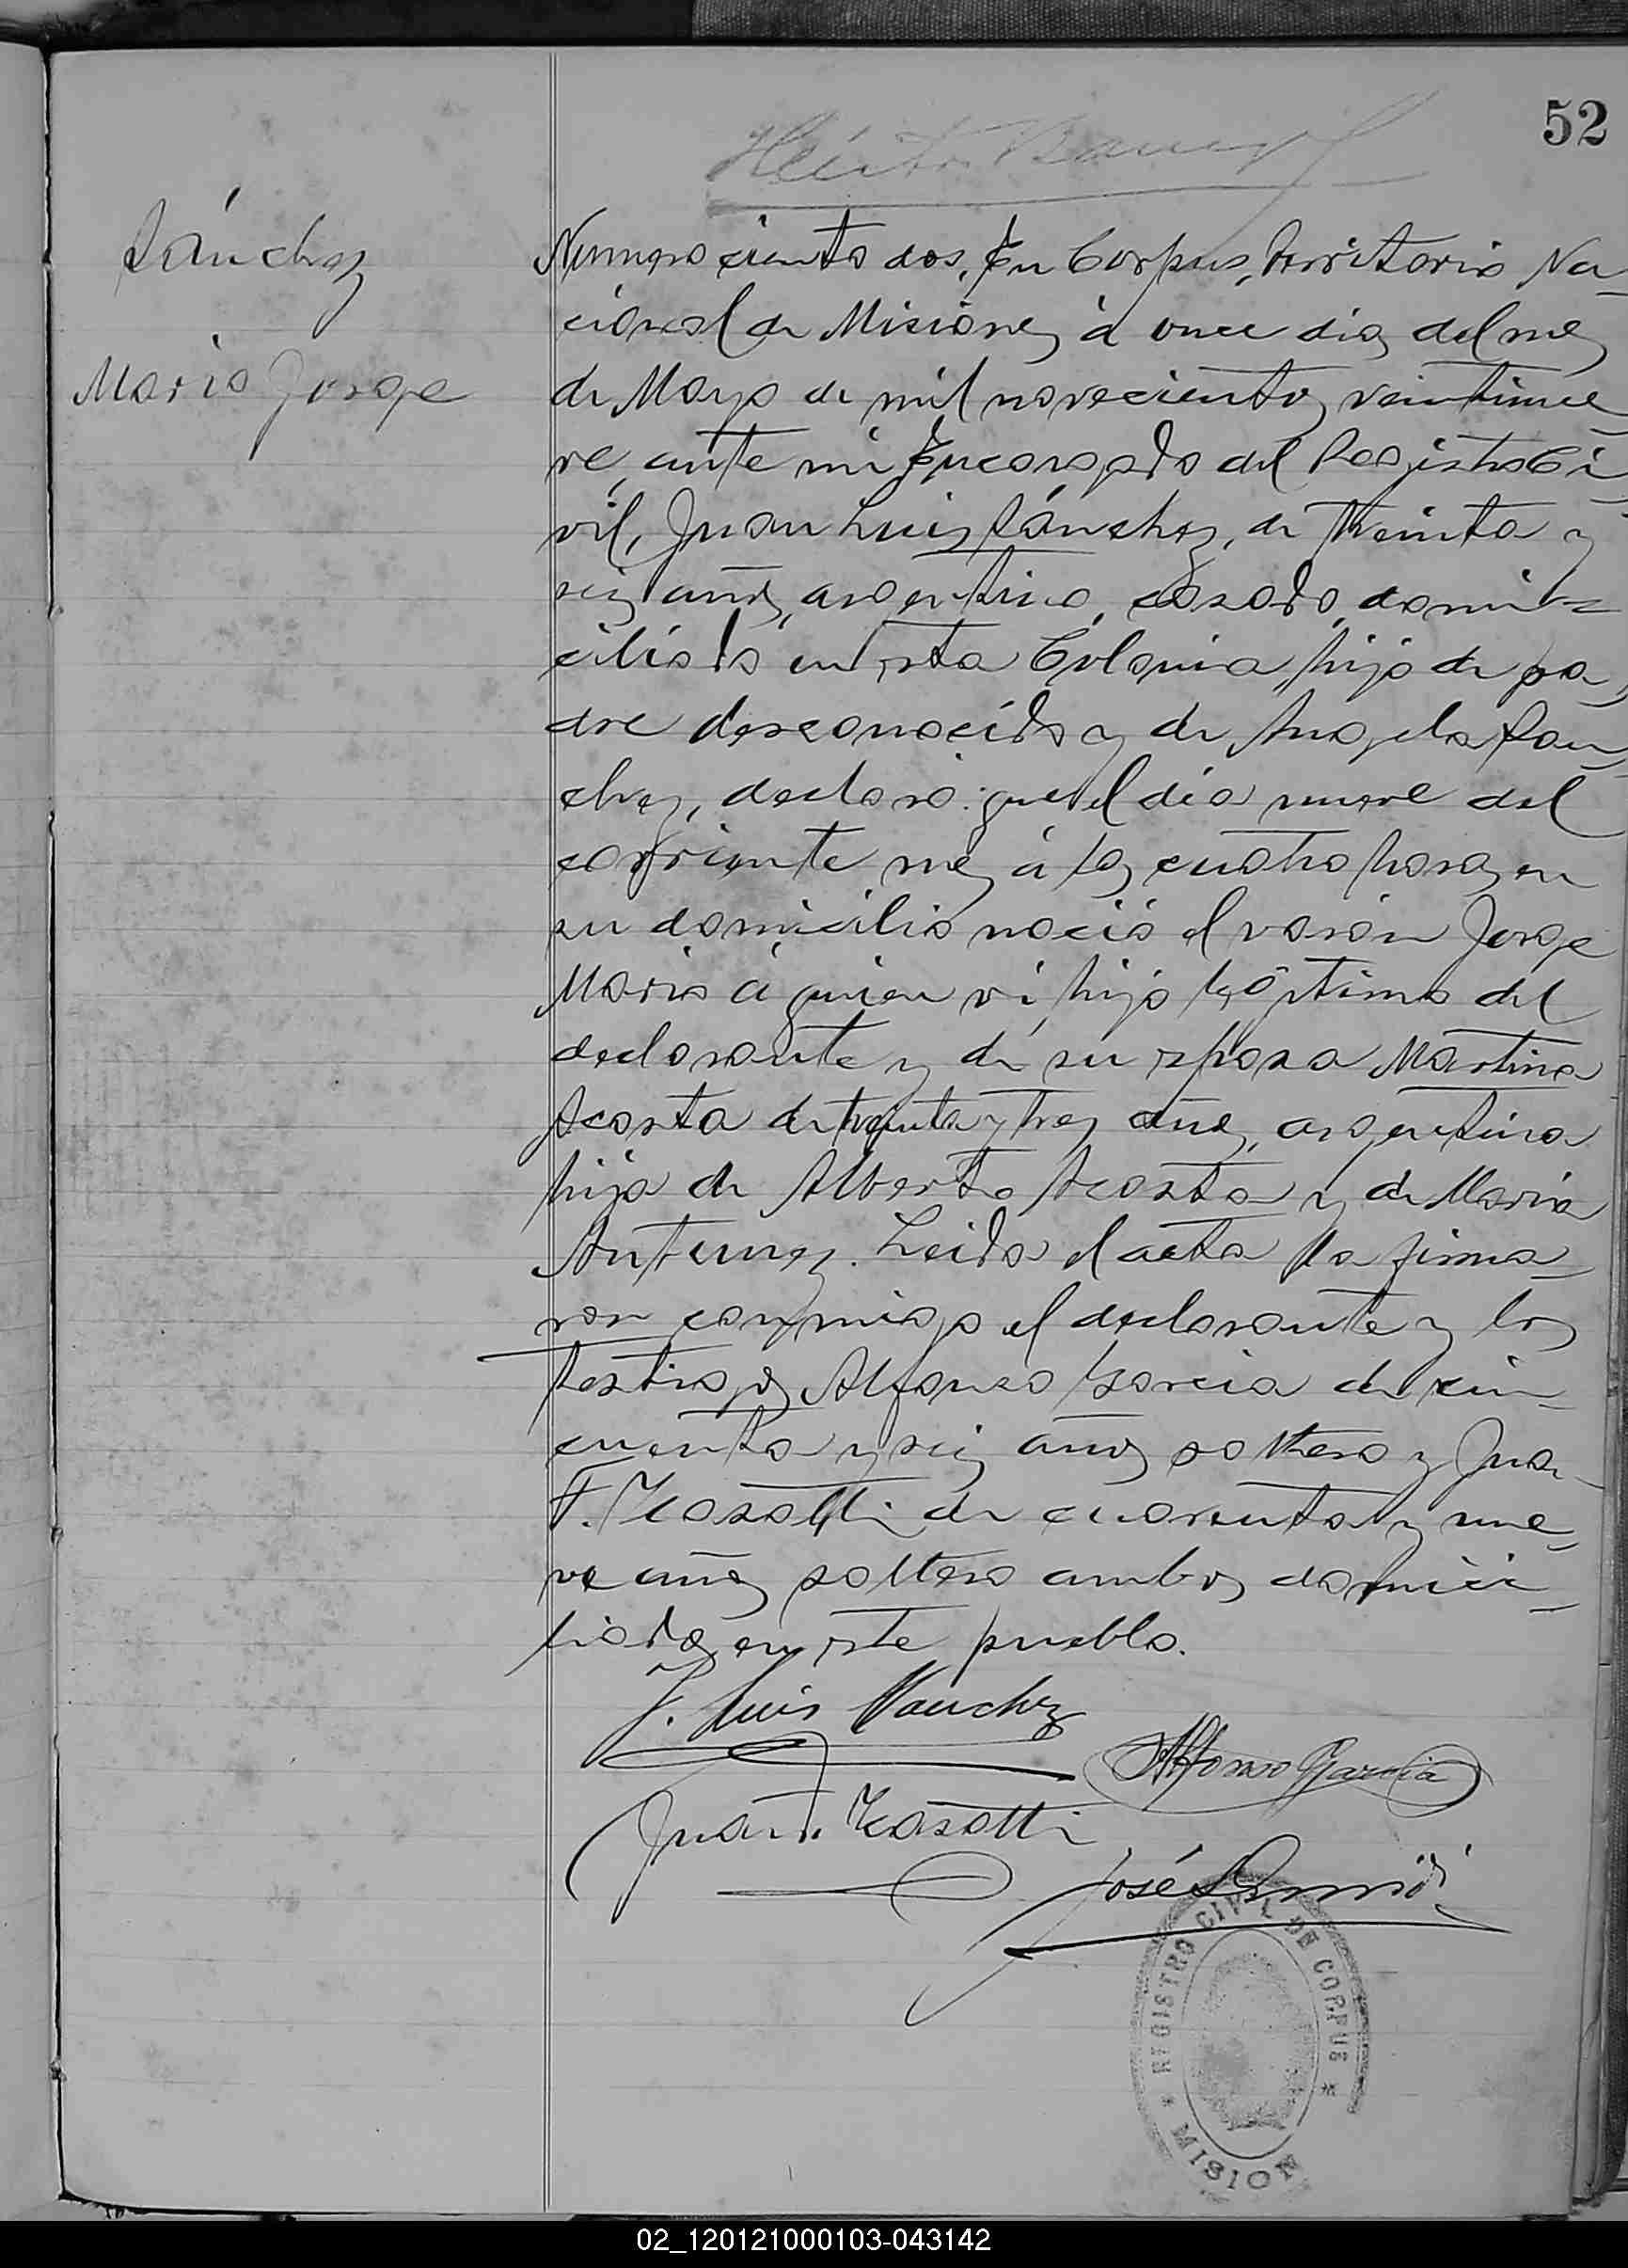 52
Sánchez
Mario Jorge
Numero ciento dos, En Corpus, Territorio Na
cional de Misiones á once dias del mes
de Mayo de mil novecientos veintinue
ve, ante mi Encargado del Registro Ci
vil, Juan Luis Sánchez, de treinta y
seis años, argentino, casado, domi=
ciliado en esta Colonia, hijo de pa
dre desconocido y de Angela San
chez, declaró: que el dia nueve del
corriente mes á las cuatro horas en
su domicilio nació el varón Jorge
Mario á quien vi, hijo legítimo del
declarante y de su esposa Martina
Acosta de treinta y tres años, argentina
hija de Alberto Acosta y de Maria
Antunez. Leida el acta la firma
ron conmigo el declarante y los
testigos Alfonso Garcia de cin
cuenta y seis años soltero y Juan
F. de cuarenta y nue
ve años soltero ambos domici
liados en este pueblo.
J. Luis Sanchez
Alfonso Garcia
Juan F.
José
* REGISTRO CIVIL DE CORPUS *
MISION
02_120121000103-043142